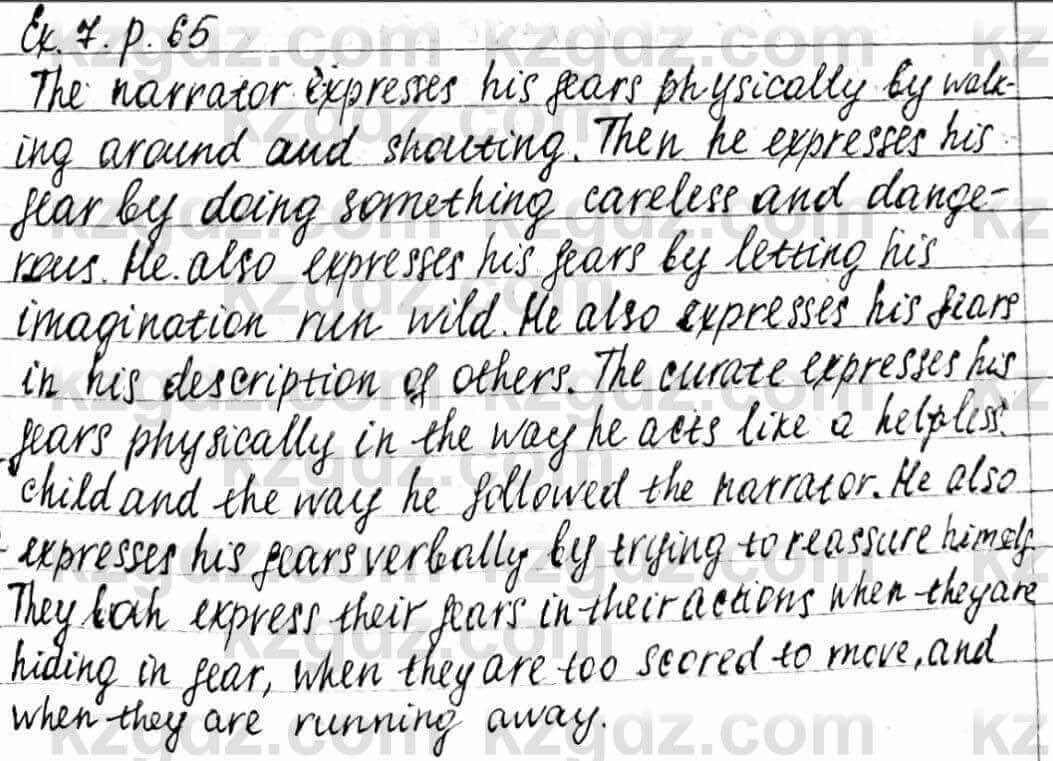 Ex. 7. p. 65
The narrator expresses his fears physically by walk-
ing around and shouting. Then he expresses his
fear by doing something careless and dange-
rous. He also expresses his fears by letting his
imagination run wild. He also expresses his fears
in his description of others. The curate expresses his
fears physically in the way he acts like a helpless
child and the way he followed the narrator. He also
expresses his fears verbally by trying to reassure himself.
They both express their fears in their actions when they are
hiding in fear, when they are too scored to move, and
when they are running away.
kzgdz.com